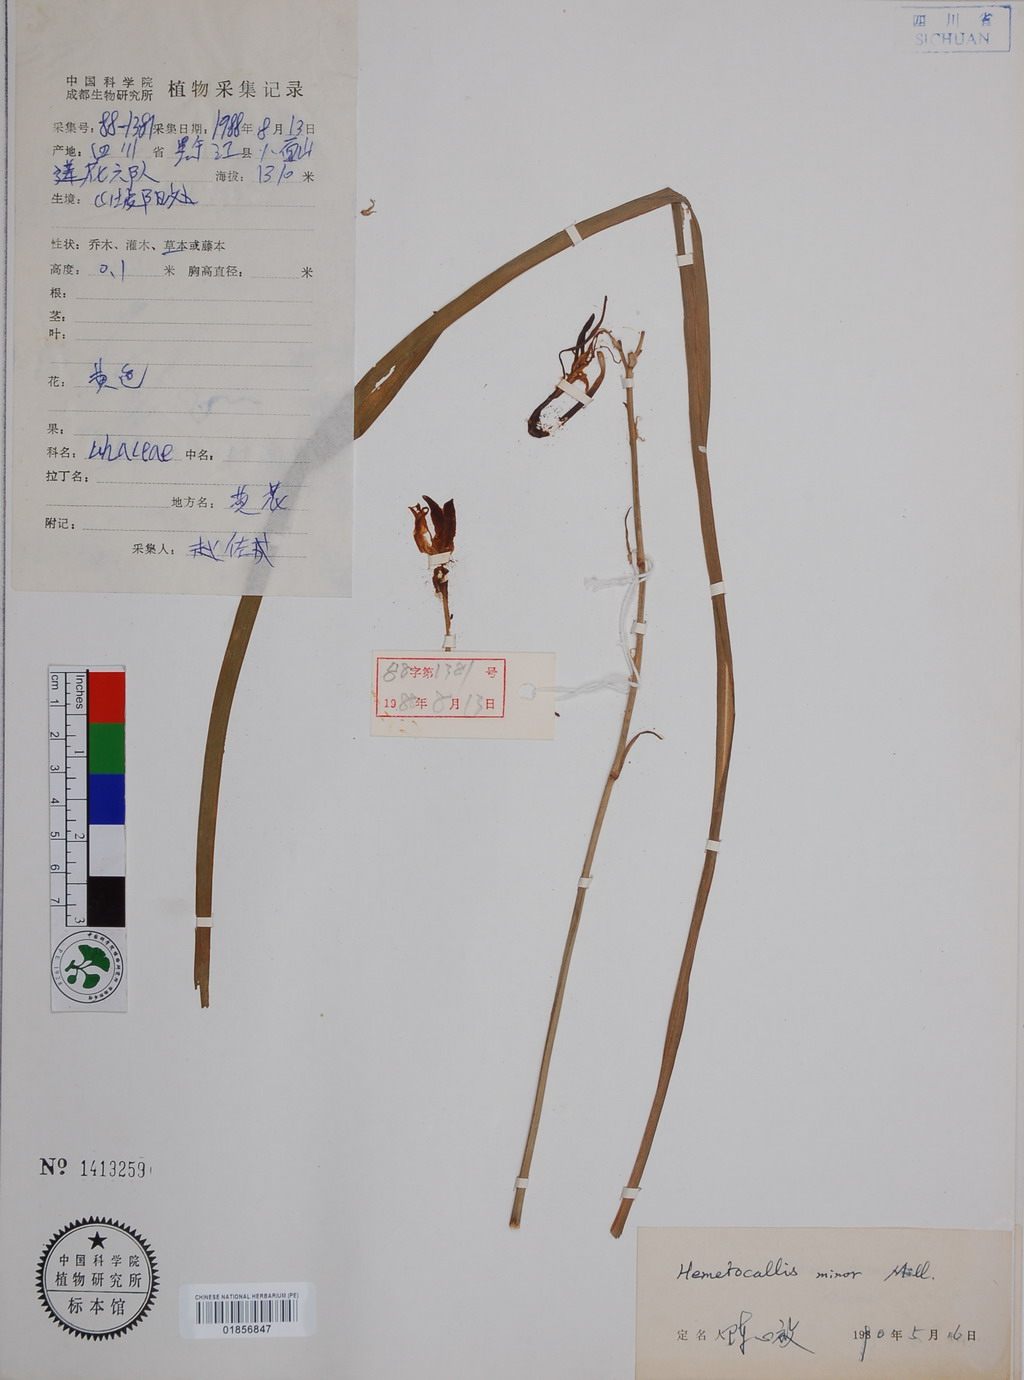 四川省
SICHUAN
中国科学院
成都生物研究所 植物采集记录
采集号: 88-1381 采集日期: 1988年8月13日
产地: 四川 省 黔江 县
莲花六队 海拔: 1310 米
生境: 山坡阳处
性状: 乔木、灌木、草本或藤本
高度: 0.1 米 胸高直径: 米
根:
茎:
叶:
花: 黄色
果:
科名: Liliaceae 中名:
拉丁名:
地方名: 黄花
附记:
采集人: 赵佐成
88字第1381号
1988年8月13日
cm 1 2 3 4 5 6 7
Inches 1 2 3
№ 1413259
中国科学院
植物研究所
标本馆
CHINESE NATIONAL HERBARIUM (PE)
01856847
Hemerocallis minor Mill.
定名人 陈心启 1990年5月16日